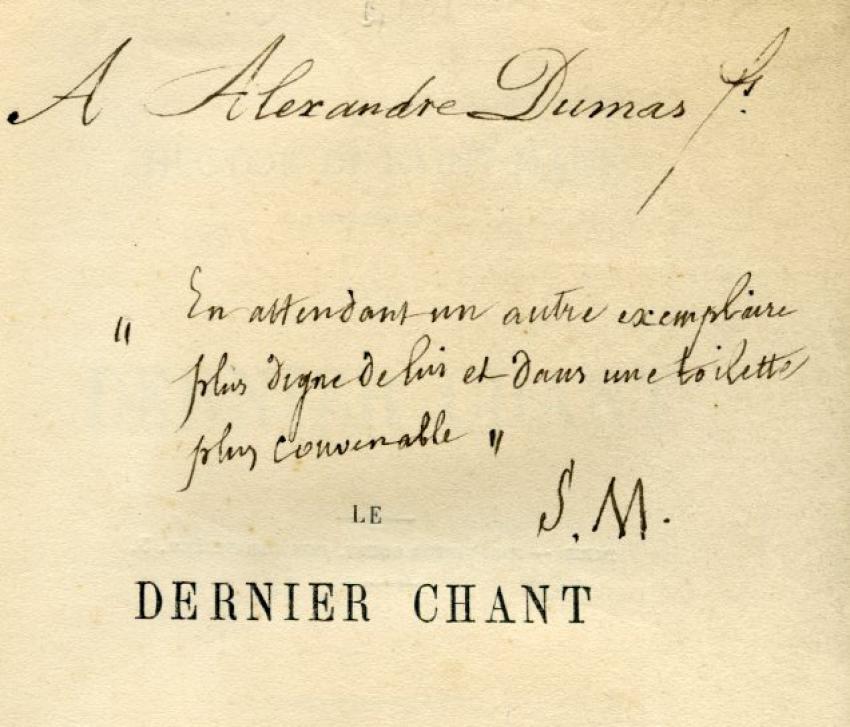 A Alexandre Dumas fs.
" En attendant un autre exemplaire
plus digne de lui et dans une toilette
plus convenable "
S. M.
LE
DERNIER CHANT